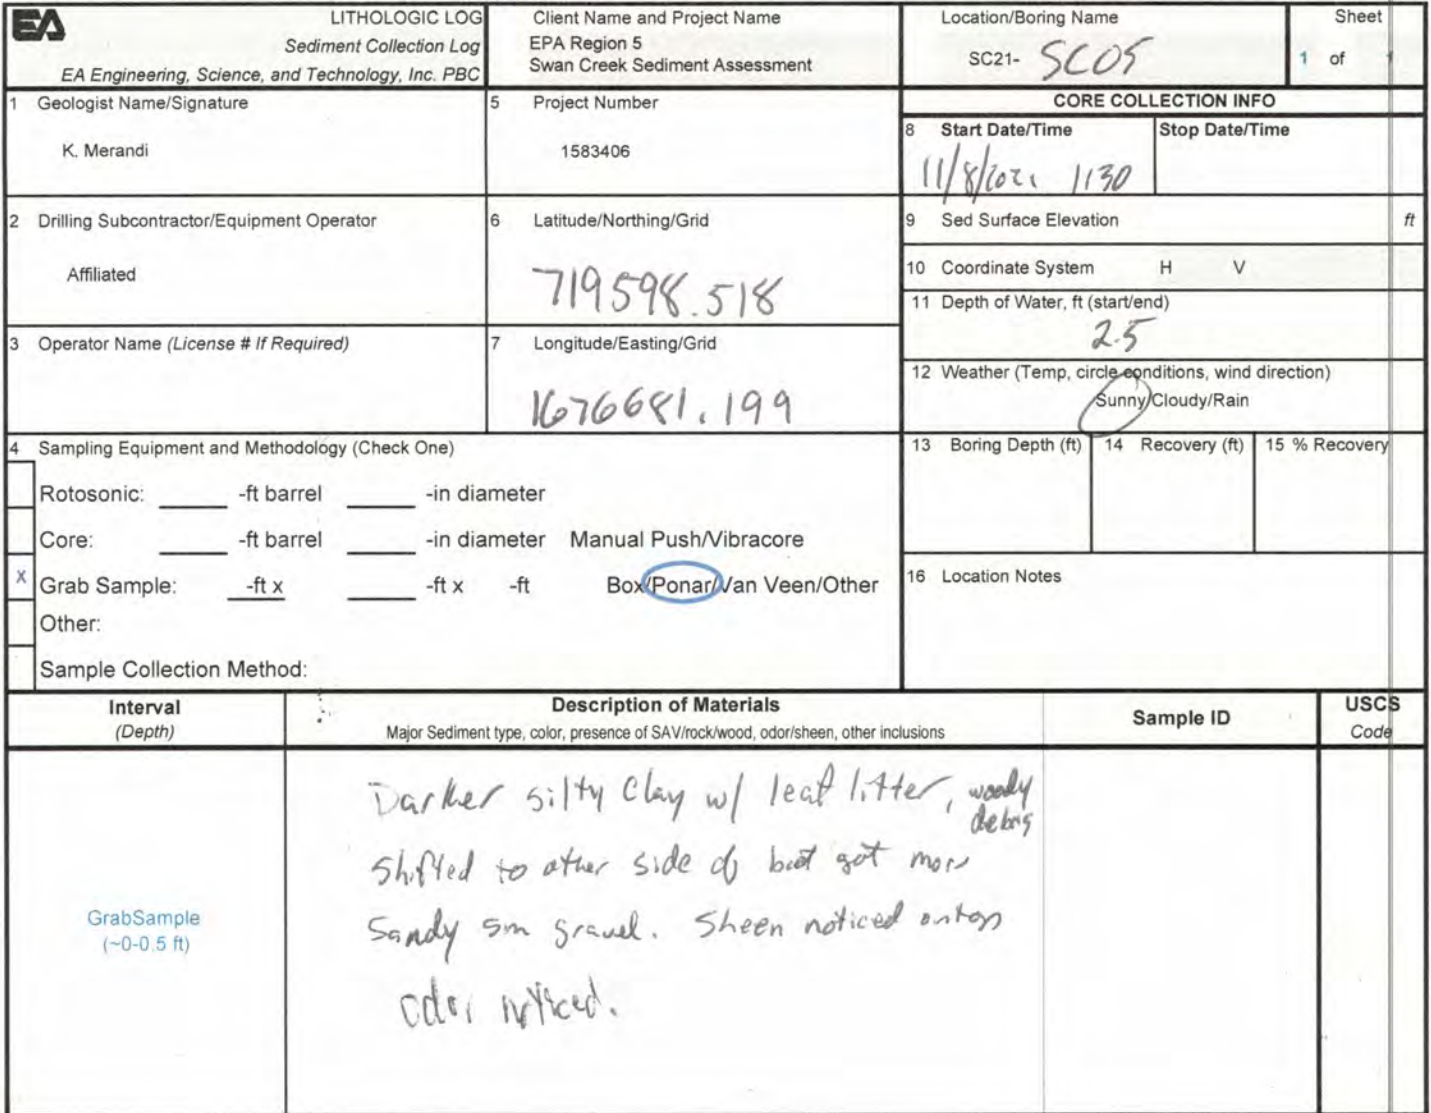 EA
LITHOLOGIC LOG
Sediment Collection Log
EA Engineering, Science, and Technology, Inc. PBC
Client Name and Project Name
EPA Region 5
Swan Creek Sediment Assessment
Location/Boring Name
SC21- SC05
Sheet
1 of 1
1 Geologist Name/Signature
K. Merandi
5 Project Number
1583406
CORE COLLECTION INFO
8 Start Date/Time
Stop Date/Time
11/8/2021 1130
2 Drilling Subcontractor/Equipment Operator
Affiliated
6 Latitude/Northing/Grid
719598.518
9 Sed Surface Elevation ft
10 Coordinate System H V
11 Depth of Water, ft (start/end)
2.5
3 Operator Name (License # If Required)
7 Longitude/Easting/Grid
1676681.199
12 Weather (Temp, circle conditions, wind direction)
Sunny/Cloudy/Rain
4 Sampling Equipment and Methodology (Check One)
Rotosonic: -ft barrel -in diameter
Core: -ft barrel -in diameter Manual Push/Vibracore
X Grab Sample: -ft x -ft x -ft Box/Ponar/Van Veen/Other
Other:
Sample Collection Method:
13 Boring Depth (ft)
14 Recovery (ft)
15 % Recovery
16 Location Notes
Interval
(Depth)
Description of Materials
Major Sediment type, color, presence of SAV/rock/wood, odor/sheen, other inclusions
Sample ID
USCS
Code
GrabSample
(~0-0.5 ft)
Darker silty Clay w/ leaf litter, woody
debris
Shifted to other side of boat got more
Sandy sm gravel. Sheen noticed ontop
odor noticed.